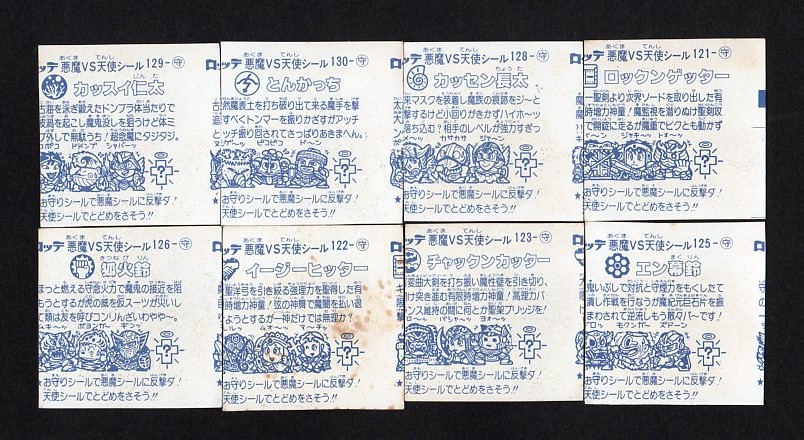 ッテ 悪魔VS天使シール 129-守
あくま てんし
じんた
カッスイ仁太
古海を泳ぎ鍛えたドンブラ体当たりで
波渦を起こし魔鬼没しを狙うけど体ミ
ブ外しで無駄うち!超悪魔にタジタジ。
お守りシールで悪魔シールに反撃ダ!
天使シールでとどめをさそう!!
ロッテ 悪魔VS天使シール 130-守
あくま てんし
とんかっち
然魔表土を打ち破り出て来る魔手を撃
すべくトンマーを振りかざすがアッチ
ッチ振り回されてさっぱりあきまへん。
ピコピコ ド〜ン
お守りシールで悪魔シールに反撃ダ!
天使シールでとどめをさそう!!
ロッテ 悪魔VS天使シール 128-守
あくま てんし
ちょうた
カッセン長太
マスクを装着し魔族の衰跡をジ〜と
撃するけど小回りがきかずハイホ〜ッ
落ち込む?相手のレベルが強力すぎっ
カサカサ ジャ〜ン
お守りシールで悪魔シールに反撃ダ!
天使シールでとどめをさそう!!
ロッテ 悪魔VS天使シール 121-守
あくま てんし
ロックンゲッター
聖剣より次界ソードを取り出した有
時増力神童!魔監視を潜りぬけ聖剣攻
で開錠に走るが魔重でピクとも動かず
ジャキ〜ッ ド〜ン
お守りシールで悪魔シールに反撃ダ!
天使シールでとどめをさそう!!
ロッテ 悪魔VS天使シール 126-守
あくま てんし
きつねび りん
狐火鈴
まっと燃える守念火力で魔鬼の接近を阻
もうとするが虎の威を仮スーツが火いし
て類は友を呼びコンリんざいわやや〜。
お守りシールで悪魔シールに反撃ダ!
天使シールでとどめをさそう!!
ロッテ 悪魔VS天使シール 122-守
あくま てんし
イージーヒッター
聖洋弓を引き絞る強理力を聖得した有
時増力神童!弦の神舞で魔層を払い退
ようとするが一神だけでは無理か?
ムオ〜ッ
お守りシールで悪魔シールに反撃ダ!
天使シールでとどめをさそう!!
ロッテ 悪魔VS天使シール 123-守
あくま てんし
チャックンカッター
変曲大剣を打ち振い魔性壁を引き切り、
け突き進む有限時増力神童!高理力バ
ンス維持の間に何とか聖架ブリッジを!
お守りシールで悪魔シールに反撃ダ!
天使シールでとどめをさそう!!
ロッテ 悪魔VS天使シール 125-守
あくま てんし
まくりん
エン幕鈴
鬼いぶしで対抗と守煙力をもくしたて
潰し作戦を行なうが魔紀元巨石片を振
まわされて逆流しもう散々バ〜です!
モクンガ〜 ズド〜ン
お守りシールで悪魔シールに反撃ダ!
天使シールでとどめをさそう!!